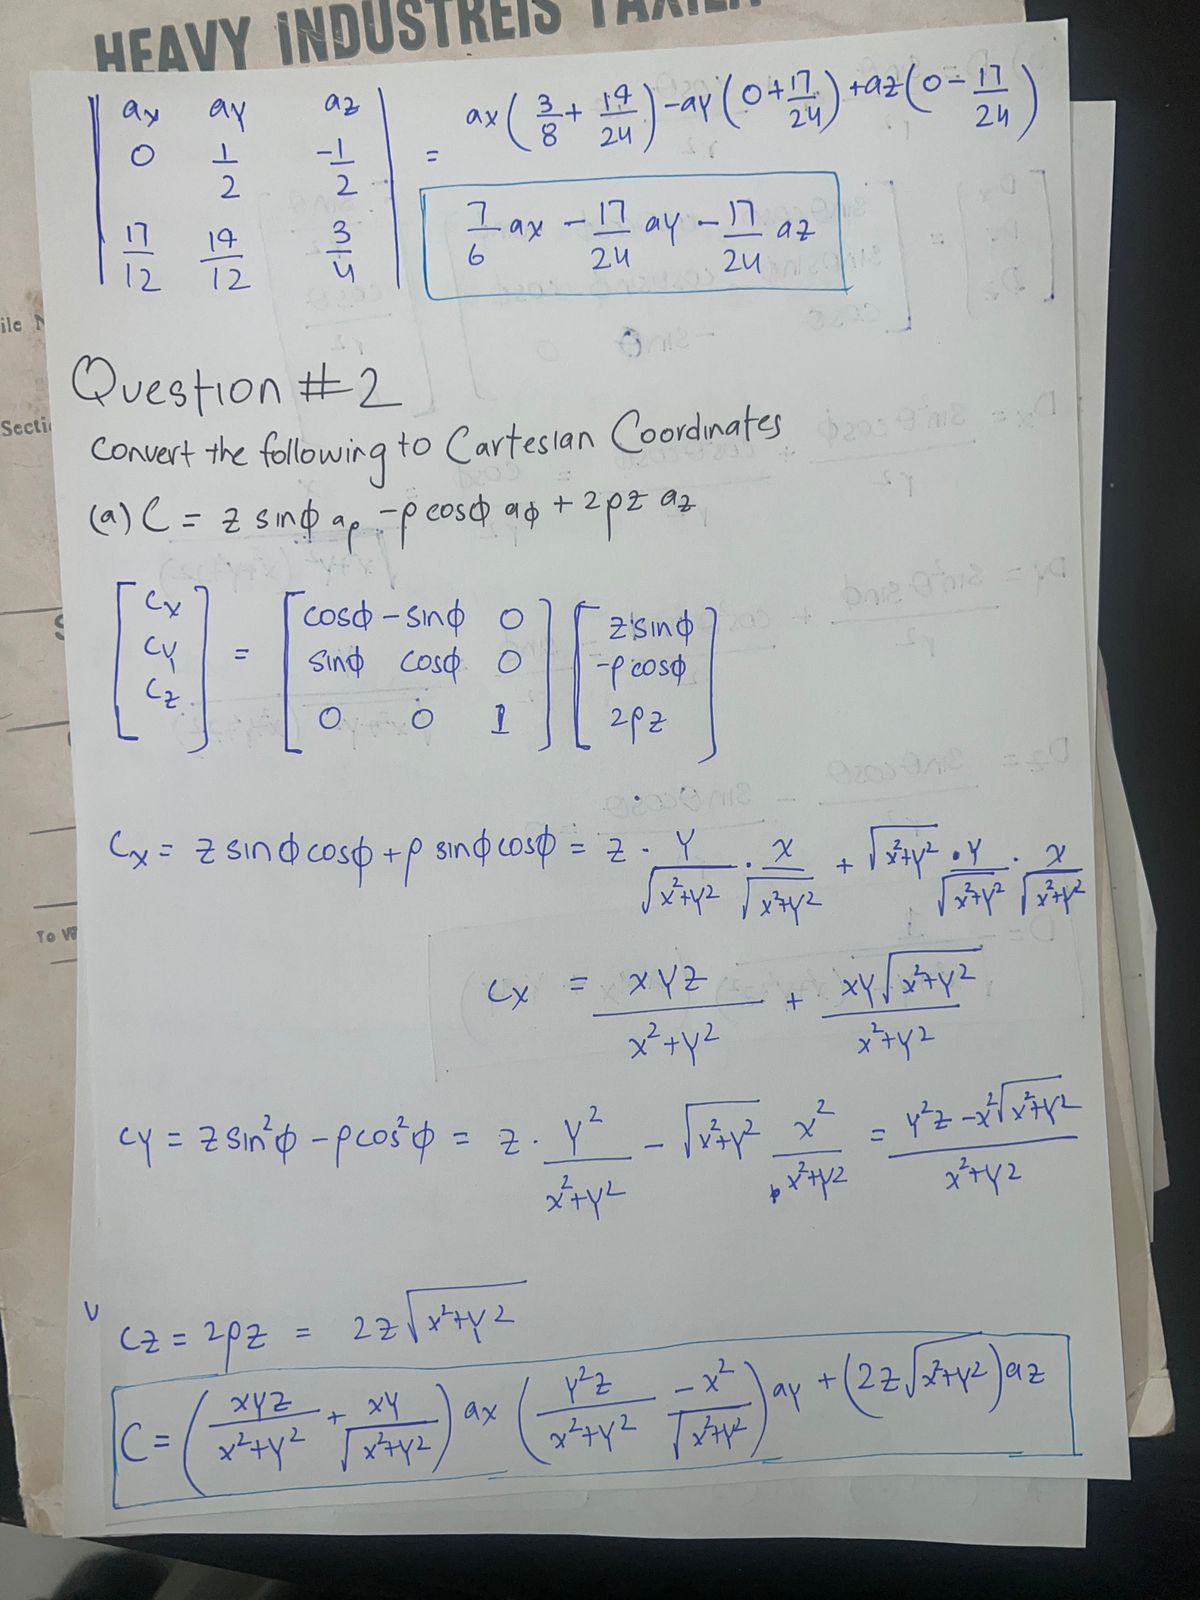 HEAVY INDUSTREIS TAXILA
| ax ay az |
| 0 1/2 -1/2 |
| 17/12 19/12 3/4 |
= ax(3/8 + 19/24) - ay(0 + 17/24) + az(0 - 17/24)
7/6 ax - 17/24 ay - 17/24 az
Question #2
Convert the following to Cartesian Coordinates
(a) C = z sinϕ aρ - ρ cosϕ aϕ + 2ρz az
[Cx Cy Cz] = [cosϕ -sinϕ 0; sinϕ cosϕ 0; 0 0 1] [z sinϕ; -ρ cosϕ; 2ρz]
Cx = z sinϕ cosϕ + ρ sinϕ cosϕ = z · y/√(x²+y²) · x/√(x²+y²) + √(x²+y²) · y/√(x²+y²) · x/√(x²+y²)
Cx = xyz/(x²+y²) + xy√(x²+y²)/(x²+y²)
Cy = z sin²ϕ - ρcos²ϕ = z · y²/(x²+y²) - √(x²+y²) x²/(x²+y²) = (y²z - x²√(x²+y²))/(x²+y²)
Cz = 2ρz = 2z√(x²+y²)
C = (xyz/(x²+y²) + xy/√(x²+y²)) ax (y²z/(x²+y²) - x²/√(x²+y²)) ay + (2z√(x²+y²)) az